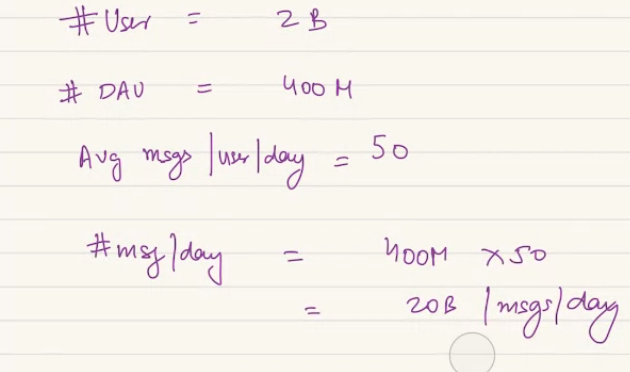 # User = 2B
# DAU = 400M
Avg msgs /user/day = 50
#msg/day = 400M x 50
= 20B /msgs/day